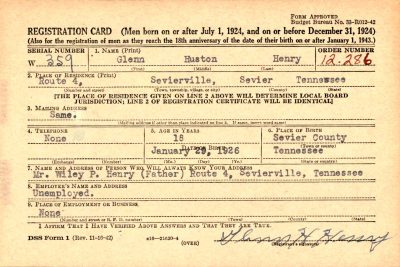 Form Approved
Budget Bureau No. 33-R012-42
REGISTRATION CARD (Men born on or after July 1, 1924, and on or before December 31, 1924)
(Also for the registration of men as they reach the 18th anniversary of the date of their birth on or after January 1, 1943.)
SERIAL NUMBER 1. NAME (Print) ORDER NUMBER
W 359 Glenn Huston Henry 12,286
(First) (Middle) (Last)
2. PLACE OF RESIDENCE (Print)
Route 4, Sevierville, Sevier Tennessee
(Number and street) (Town, township, village, or city) (County) (State)
[THE PLACE OF RESIDENCE GIVEN ON LINE 2 ABOVE WILL DETERMINE LOCAL BOARD
JURISDICTION; LINE 2 OF REGISTRATION CERTIFICATE WILL BE IDENTICAL]
3. MAILING ADDRESS
Same.
[Mailing address if other than place indicated on line 2. If same, insert word same]
4. TELEPHONE 5. AGE IN YEARS 6. PLACE OF BIRTH
None 18 Sevier County
DATE OF BIRTH (Town or county)
January 29, 1926 Tennessee
(Exchange) (Number) (Mo.) (Day) (Yr.) (State or country)
7. NAME AND ADDRESS OF PERSON WHO WILL ALWAYS KNOW YOUR ADDRESS
Mr. Wiley P. Henry (Father) Route 4, Sevierville, Tennessee
8. EMPLOYER'S NAME AND ADDRESS
Unemployed.
9. PLACE OF EMPLOYMENT OR BUSINESS
None
(Number and street or R. F. D. number) (Town) (County) (State)
I AFFIRM THAT I HAVE VERIFIED ABOVE ANSWERS AND THAT THEY ARE TRUE.
DSS Form 1 (Rev. 11-16-42) (OVER) Glenn H Henry
(Registrant's signature)